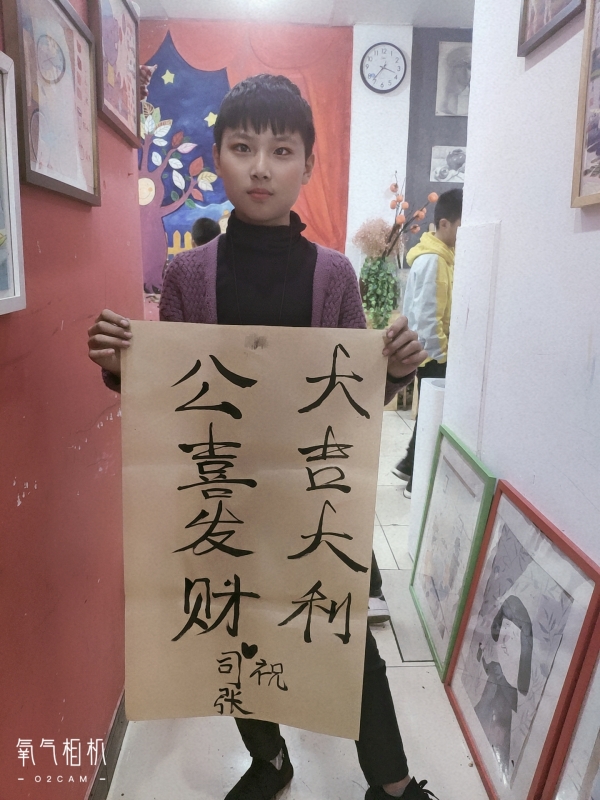 大吉大利
公喜发财
祝
司张
氧气相机
- O2CAM -